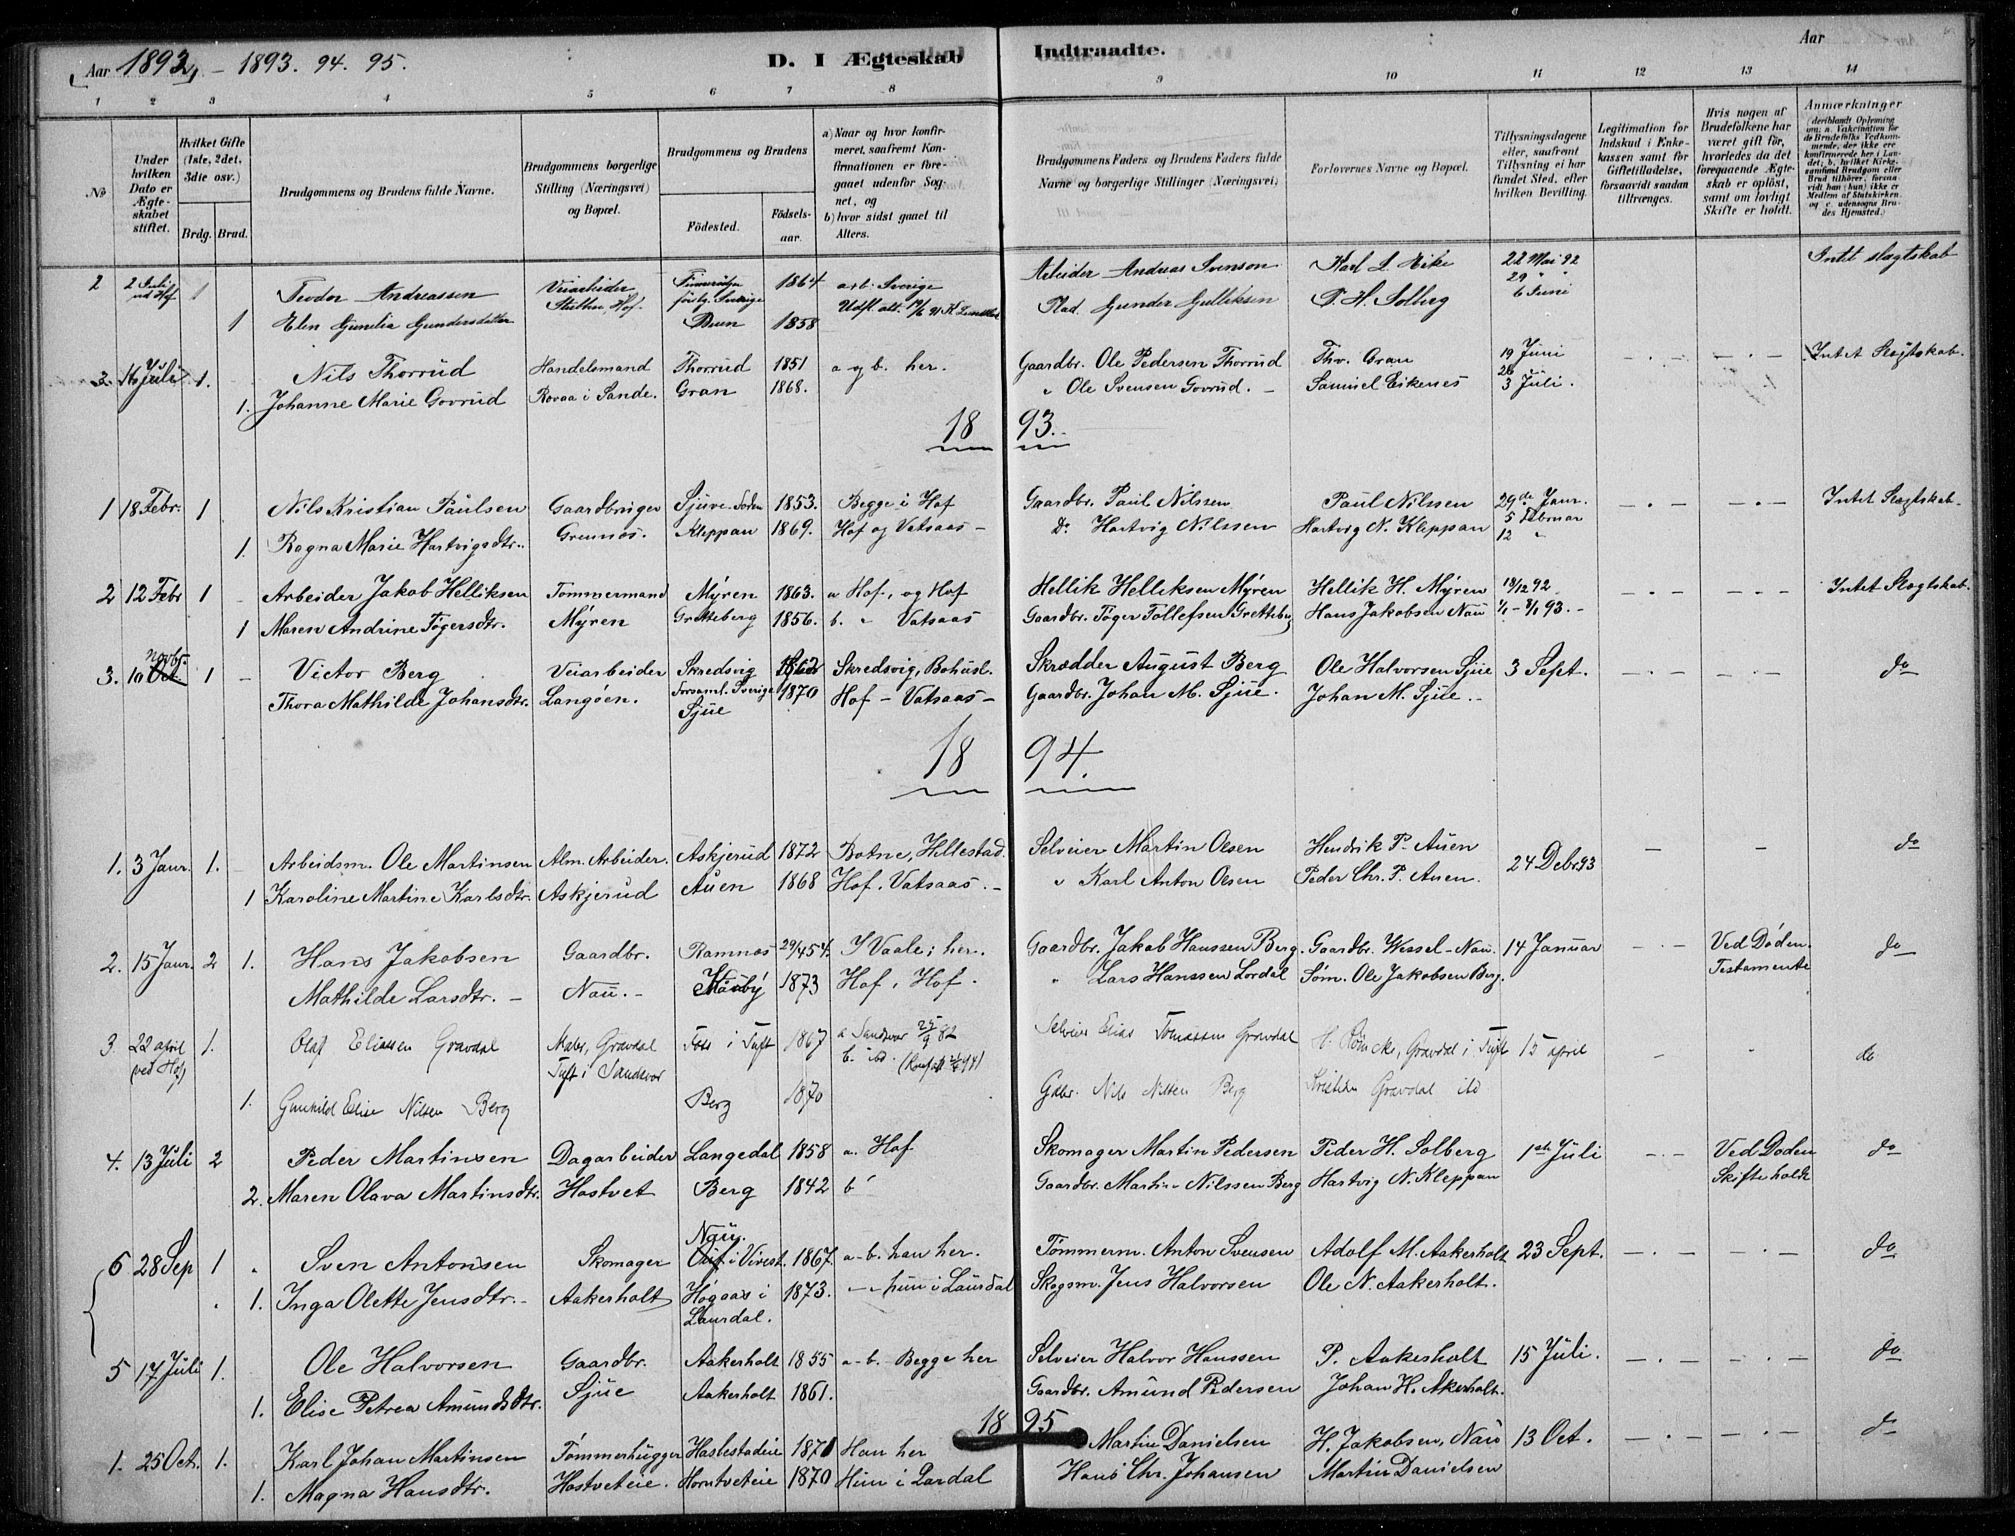 Aar 1892, – 1893. 94. 95.
D. I Ægteskab Indtraadte.
Aar
1 2 3 4 5 6 7 8 9 10 11 12 13 14
No
Under hvilken Dato er Ægteskabet stiftet.
Hvilket Gifte (1ste, 2det, 3die osv.)
Brdg. Brud.
Brudgommens og Brudens fulde Navne.
Brudgommens borgerlige Stilling (Næringsvei) og Bopæl.
Brudgommens og Brudens
Fødested.
Fødselsaar.
a) Naar og hvor konfirmeret, saafremt Konfirmationen er foregaaet udenfor Sognet, og
b) hvor sidst gaaet til Alters.
Brudgommens Faders og Brudens Faders fulde Navne og borgerlige Stillinger (Næringsvei)
Forlovernes Navne og Bopæl.
Tillysningsdagene eller, saafremt Tillysning ei har fundet Sted, efter hvilken Bevilling.
Legitimation for Indskud i Enkekassen samt for Giftetilladelse, forsaavidt saadan tiltrænges.
Hvis nogen af Brudefolkene har været gift før, hvorledes da det foregaaende Ægteskab er opløst, samt om lovligt Skifte er holdt.
Anmærkninger
2 2 Juli ved Hof 1 Teodor Andreassen Veiarbeider 1864 a+b. Sverige Arbeider Andreas Svenson Karl L. Eike 22 Mai 92 Intet slægtskab
29 " "
6 Juni
1 Elen Gunelia Gundersdatter Buen 1858 Plad. Gunder Gulliksen P. H. Solberg
16 Juli 1. Nils Thorrud Handelsmand Thorrud 1851 a og b. her. Gaardbr. Ole Pedersen Thorrud Thv. Gran 19 Juni – . – – . – Intet Slægtskab.
26
1. Johanne Marie Govrud Rovaa i Sande. Gran 1868. " Ole Svensen Govrud. – Samuel Eikenes 3 Juli.
18 93.
1 18 Febr. 1 Nils Kristian Paulsen Gaardbruger Sjuve 1853. Begge i Hof Gaardbr. Paul Nilssen Paul Nilssen 29de Janr. – . – – . – Intet Slægtskab.
5 Februar
1. Ragna Marie Hartvigsdtr. Grennes. Kleppan 1869. Hof og Vatsaas – Do Hartvig Nilssen Hartvig N. Kleppan 12 "
2 12 Febr 1 – Arbeider Jakob Helliksen Tømmermand Myren 1863. a Hof, og Hof Hellik Helliksen Myren Hellik H. Myren 18/12 92 – . – – . – Intet Slægtskab.
1 Maren Andrine Tøgersdtr. Myren Gretteberg 1856. b. " Vatsaas Gaardbr. Tøger Tollefsen Gretteberg Hans Jakobsen Nau 93. –
Novbr.
3. 10 Oct 1 – Victor Berg Veiarbeider Skredsvig 1862 Skredsvig, Bohusl. Skrædder August Berg Ole Halvorsen Sjue 3 Sept. – . – – . – do
Thora Mathilde Johansdtr. Langøen. Forsaml. Sverige 1870 Hof – Vatsaas – Gaardbr. Johan M. Sjue. Johan M. Sjue. –
Sjue
18 94.
1. 3 Janr. 1. – Arbeidsm. Ole Martinsen Alm. Arbeider. Askjerud 1872 Botne, Hillestad. Selveier Martin Olsen Hendrik P. Auen 24 Debr 93 – – do
1 Karoline Martine Karlsdtr. Askjerud Auen 1868 Hof. Vatsaas. – " Karl Anton Olsen Peder Chr. P. Auen.
2. 15 Janr. 2 1. Hans Jakobsen Gaardbr. Ramnes 29/4 54. I Vaale; her. Gaardbr. Jakob Hanssen Berg. Gaardbr. Wessel – Nau. 14 Januar – . – Ved Døden. do
Mathilde Larsdtr. – Nau. – 1873 Hof, Hof. " Lars Hanssen Lordal Søm. Ole Jakobsen Berg. Testamente
3. 22 april (ved Hof) 1. Olaf Eliassen Gravdal Maler, Gravdal Foss i Tuft 1867 a Sandsvær 25/9 82 Selveier Elias Tomassen Gravdal Gravdal i Tuft 15 april – – do
Tuft i Sandsvær
1. Gunhild Elise Nilsen Berg Berg 1870 Gdbr. Nils Nilsen Berg Kristian Gravdal ito
4. 13 Juli 2 Peder Martinsen Dagarbeider Langedal 1858 a. Hof Skomager Martin Pedersen Peder H. Solberg 1ste Juli – . – Ved Døden do
2. Maren Olava Martinsdtr. Hostvet Berg 1842 b " Gaardbr. Martin Nilssen Berg Hartvig N. Kleppan Skifte holdt
Nau.
6 28 Sep 1 " Sven Antonsen Skomager 1867. a – b. han her. Tømmerm. Anton Svensen Adolf M. Aakerholt 23 Sept. – . – – . – do
1. Inga Olette Jensdtr. – Aakerholt Høgaas i 1873. – " hun i Laurdal Skogsm. Jens Halvorsen Ole N. Aakerholt.
Laurdal.
5 17 Juli 1. Ole Halvorsen Gaardbr. Aakerholt 1855 a – b. Begge her Selveier Halvor Hanssen P. Aakerholt 15 Juli. – . – – . – do
1. Elise Petrea Amundsdtr. Sjue Aakerholt 1861. Gaardbr. Amund Pedersen Johan H. Akerholt.
18 95
1. 25 Oct. 1. Karl Johan Martinsen Tømmerhugger Haslestadeie 1871 Han her Martin Danielsen H. Jakobsen, Nau 13 Oct. – . – – . – do
1. Magna Hansdtr. Hostveteie. Horntveteie 1870 Hun i Lardal Hans Chr. Johansen Martin Danielsen